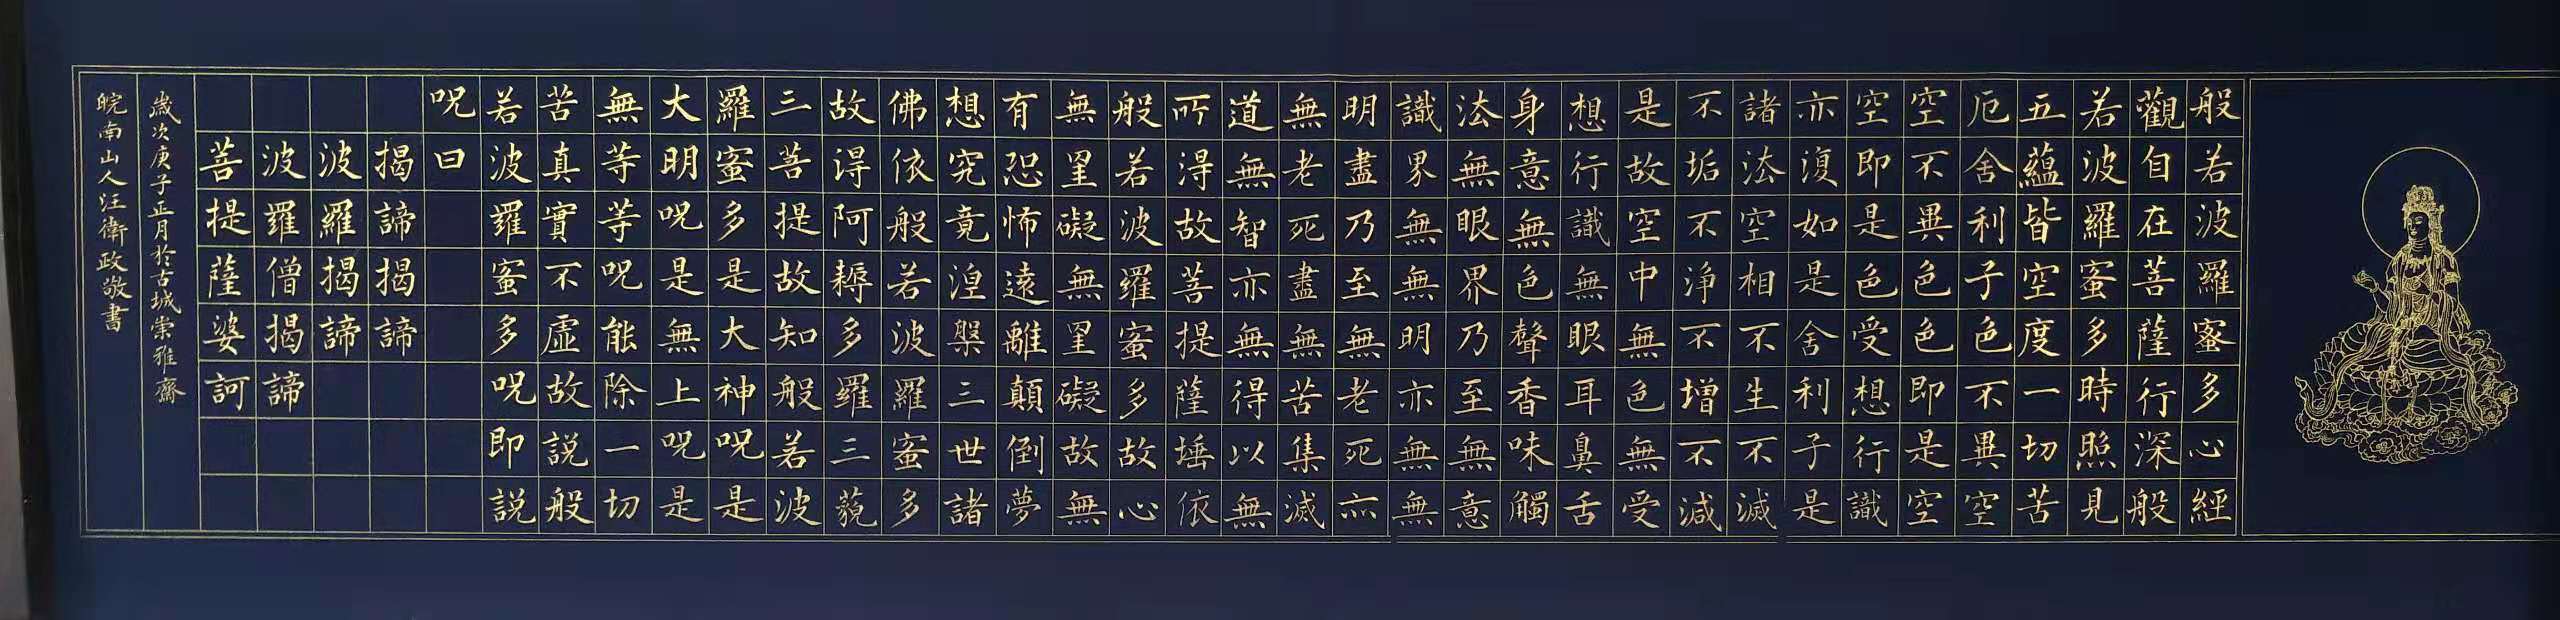 般若波羅蜜多心經
觀自在菩薩行深般
若波羅蜜多時照見
五蘊皆空度一切苦
厄舍利子色不異空
空不異色色即是空
空即是色受想行識
亦復如是舍利子是
諸法空相不生不滅
不垢不淨不增不減
是故空中無色無受
想行識無眼耳鼻舌
身意無色聲香味觸
法無眼界乃至無意
識界無無明亦無無
明盡乃至無老死亦
無老死盡無苦集滅
道無智亦無得以無
所得故菩提薩埵依
般若波羅蜜多故心
無罣礙無罣礙故無
有恐怖遠離顛倒夢
想究竟涅槃三世諸
佛依般若波羅蜜多
故得阿耨多羅三藐
三菩提故知般若波
羅蜜多是大神呪是
大明呪是無上呪是
無等等呪能除一切
苦真實不虛故說般
若波羅蜜多呪即說
呪曰
揭諦揭諦
波羅揭諦
波羅僧揭諦
菩提薩婆訶
歲次庚子正月於古城崇雅齋
皖南山人汪衛政敬書